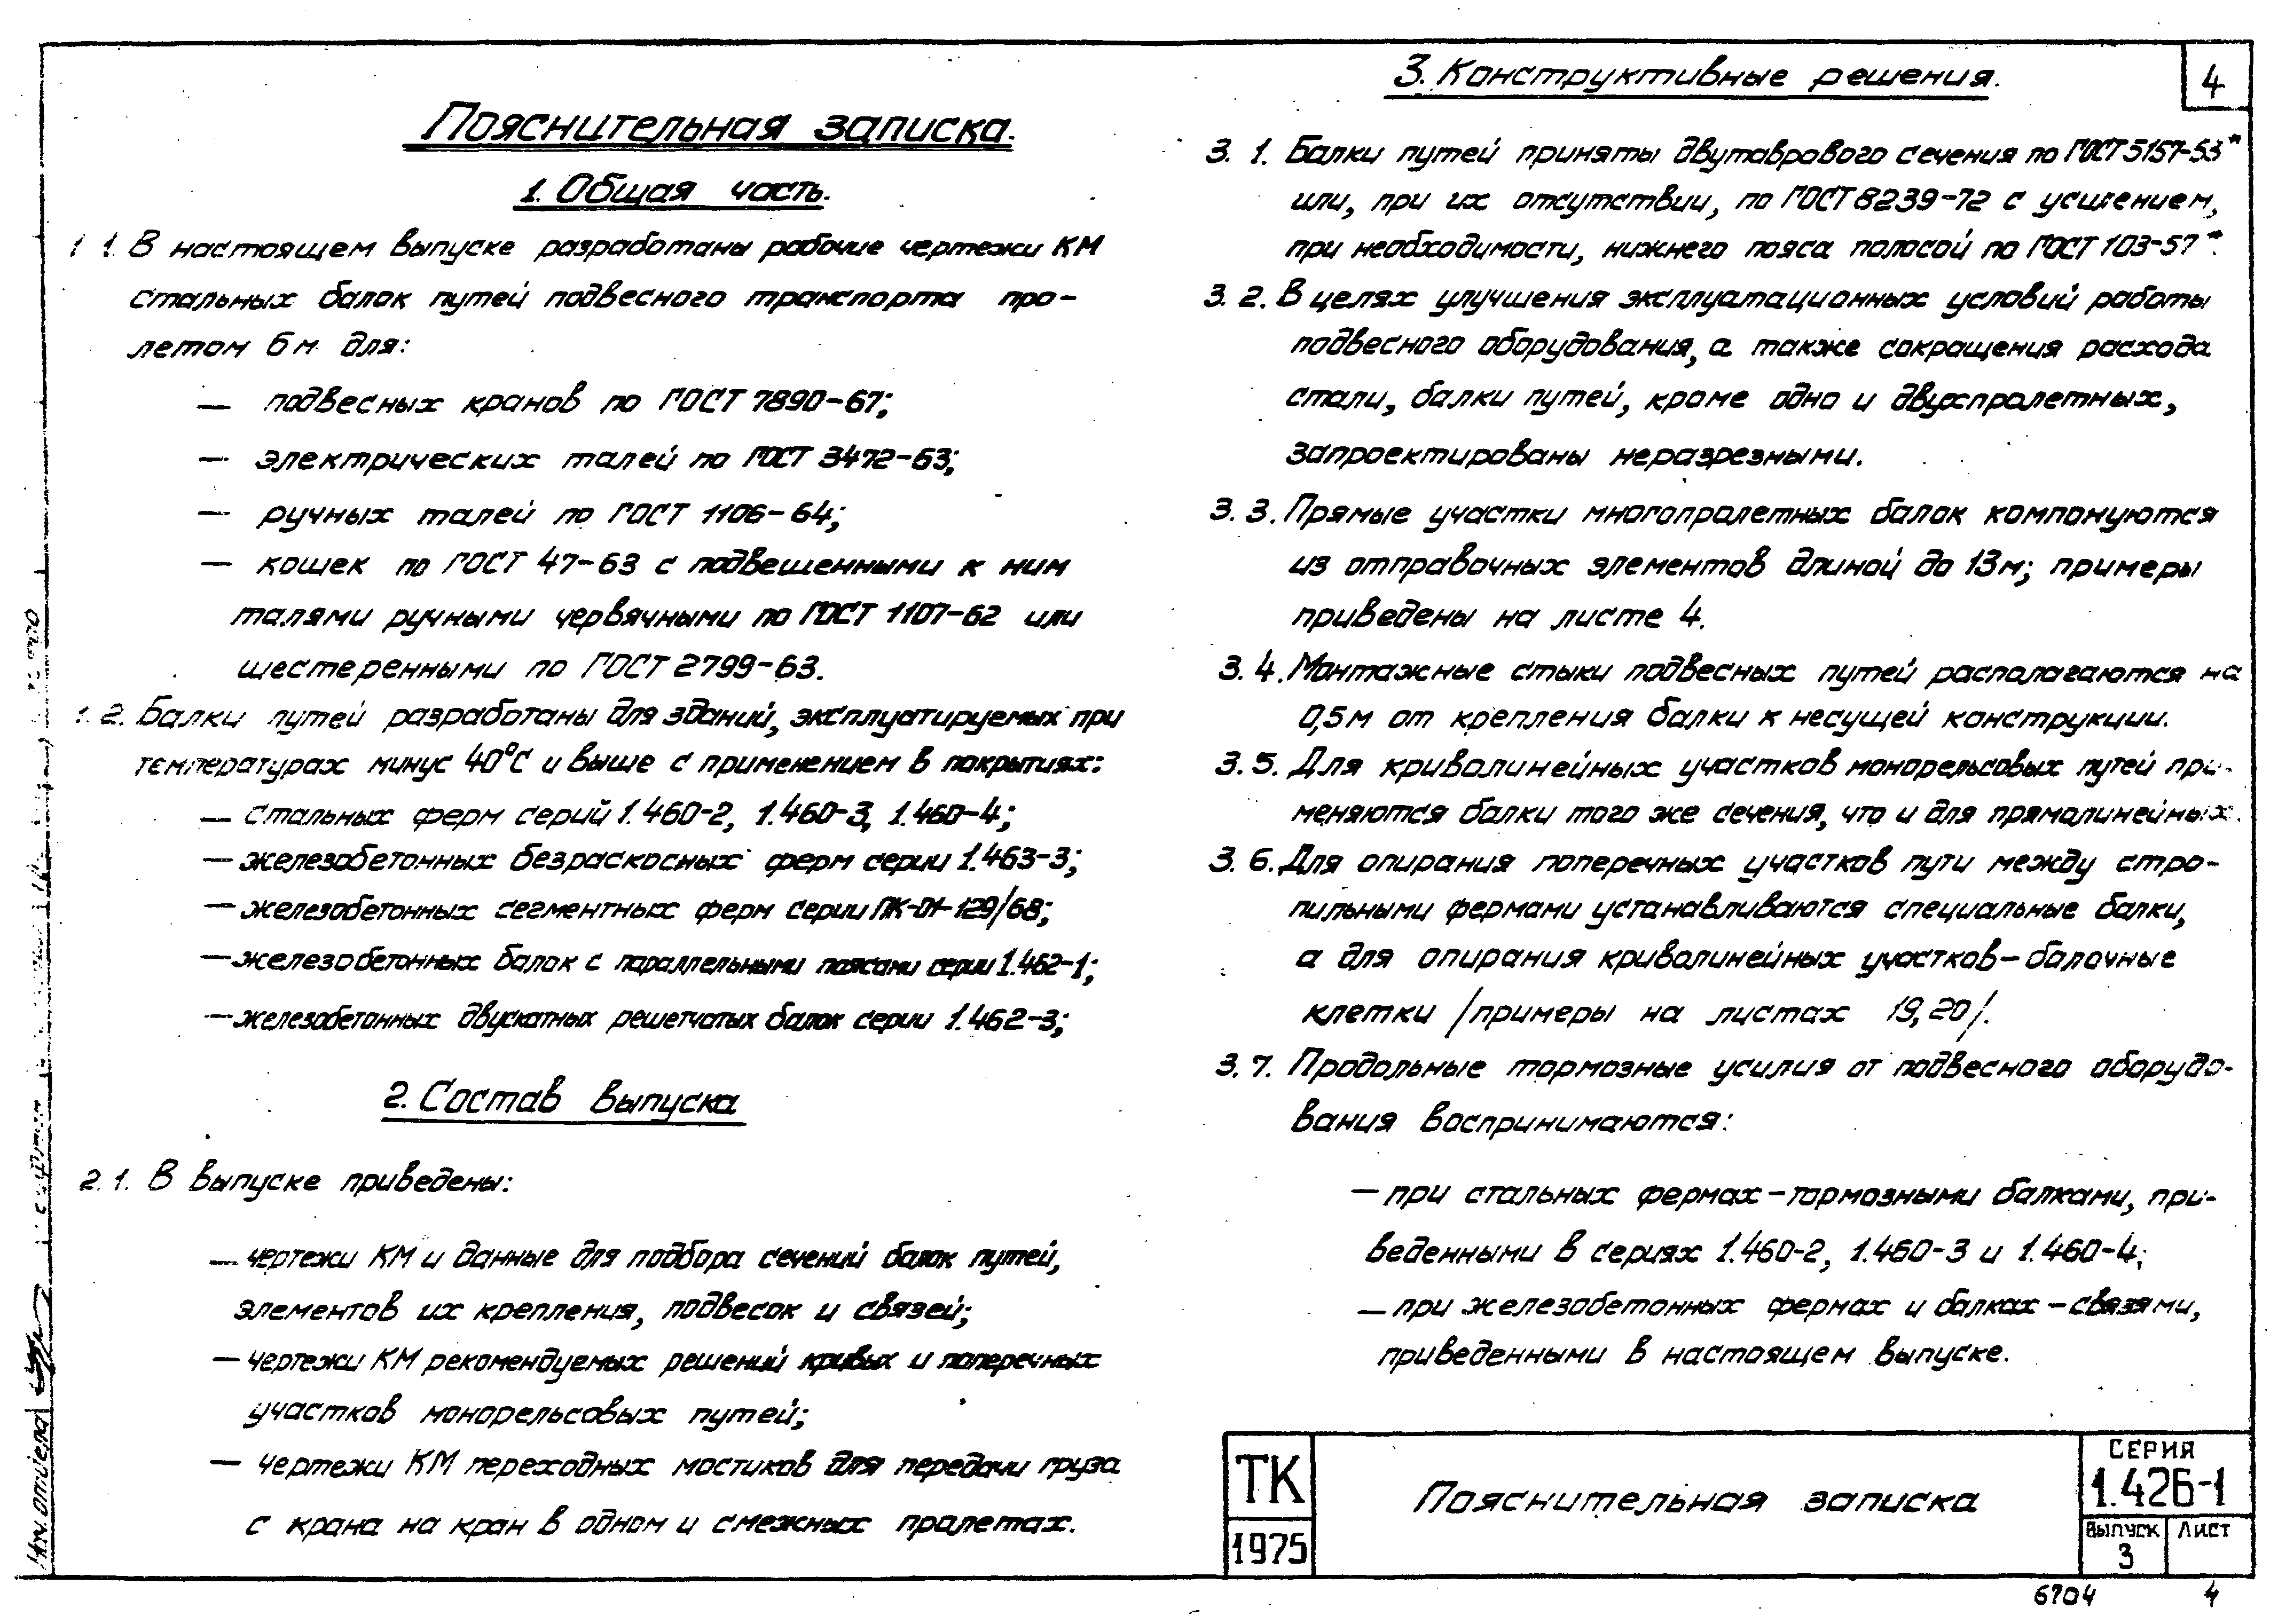 Пояснительная записка.
1. Общая часть.
1 1. В настоящем выпуске разработаны рабочие чертежи КМ
стальных балок путей подвесного транспорта про-
летом 6м для:
— подвесных кранов по ГОСТ 7890-67;
— электрических талей по ГОСТ 3472-63;
— ручных талей по ГОСТ 1106-64;
— кошек по ГОСТ 47-63 с подвешенными к ним
талями ручными червячными по ГОСТ 1107-62 или
шестеренными по ГОСТ 2799-63.
1. 2. Балки путей разработаны для зданий, эксплуатируемых при
температурах минус 40°С и выше с применением в покрытиях:
— стальных ферм серий 1.460-2, 1.460-3, 1.460-4;
— железобетонных безраскосных ферм серии 1.463-3;
— железобетонных сегментных ферм серии ПК-01-129/68;
— железобетонных балок с параллельными поясами серии 1.462-1;
— железобетонных двускатных решетчатых балок серии 1.462-3;
2. Состав выпуска
2. 1. В выпуске приведены:
— чертежи КМ и данные для подбора сечений балок путей,
элементов их крепления, подвесок и связей;
— чертежи КМ рекомендуемых решений кривых и поперечных
участков монорельсовых путей;
— чертежи КМ переходных мостиков для передачи груза
с крана на кран в одном и смежных пролетах.
3. Конструктивные решения.
4
3. 1. Балки путей приняты двутаврового сечения по ГОСТ 5157-53*
или, при их отсутствии, по ГОСТ 8239-72 с усилением,
при необходимости, нижнего пояса полосой по ГОСТ 103-57*.
3. 2. В целях улучшения эксплуатационных условий работы
подвесного оборудования, а также сокращения расхода
стали, балки путей, кроме одно и двухпролетных,
запроектированы неразрезными.
3. 3. Прямые участки многопролетных балок компонуются
из отправочных элементов длиной до 13м; примеры
приведены на листе 4.
3. 4. Монтажные стыки подвесных путей располагаются на
0,5м от крепления балки к несущей конструкции.
3. 5. Для криволинейных участков монорельсовых путей при-
меняются балки того же сечения, что и для прямолинейных.
3. 6. Для опирания поперечных участков пути между стро-
пильными фермами устанавливаются специальные балки,
а для опирания криволинейных участков-балочные
клетки /примеры на листах 19,20/.
3. 7. Продольные тормозные усилия от подвесного оборудо-
вания воспринимаются:
— при стальных фермах-тормозными балками, при-
веденными в сериях 1.460-2, 1.460-3 и 1.460-4;
— при железобетонных фермах и балках-связями,
приведенными в настоящем выпуске.
ТК
1975
Пояснительная записка
СЕРИЯ
1.426-1
Выпуск Лист
3
6704 4